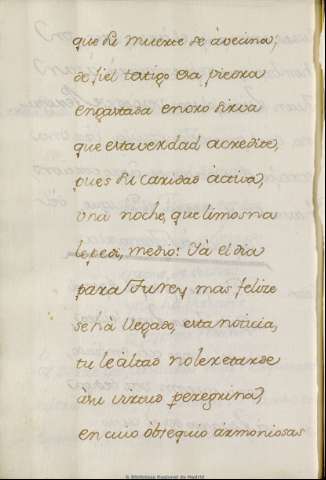 que su muerte se àvecina;
de fiel testigo esa piedra
engastada en oro sirva
que esta verdad acredite,
pues su caridad activa,
una noche, que limosna
le pedi, me dio: Yà el dia
para tu rey mas felize
se hà llegado, esta noticia,
tu lealtad no le retarde
à su virtud peregrina,
en cuio òbsequio armoniosas
© Biblioteca Nacional de España